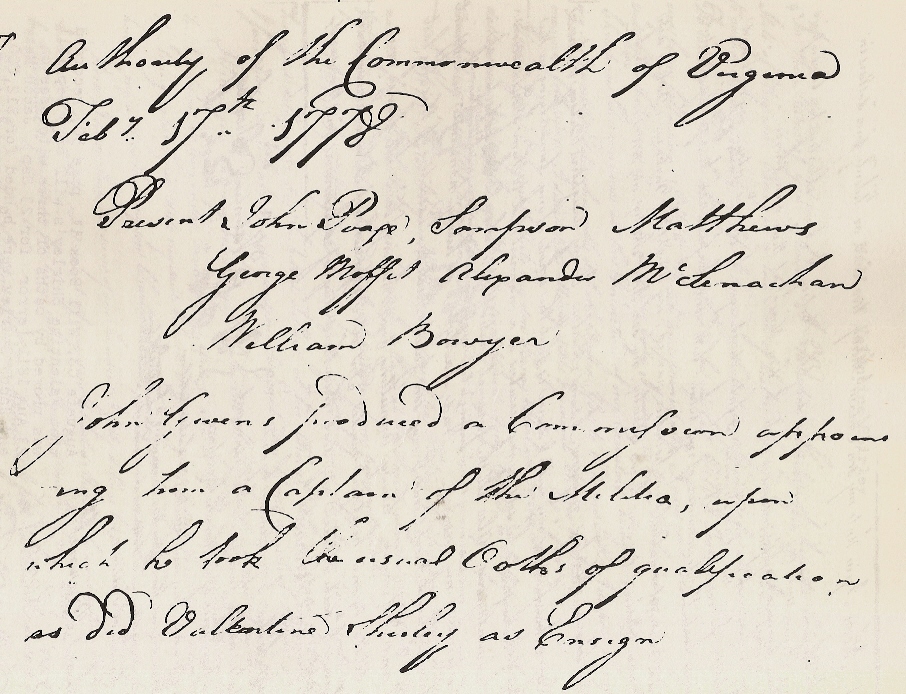 Authority of the Commonwealth of Virginia
Feby. 17th 1778
Present John Poage, Sampson Matthews
George Moffet Alexander McClenachan
William Bowyer
John Givens produced a Commission appoint
ing him a Captain of the Militia, upon
which he took the usual Oaths of qualification
as did Valentine Shirley as Ensign